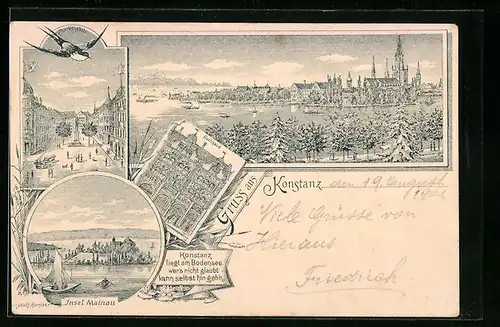 Gruss aus
Konstanz
den 19. August
Viele Grüsse von
Hieraus
Friedrich
Konstanz
liegt am Bodensee
wers nicht glaubt
kann selbst hin gehn.
Insel Mainau